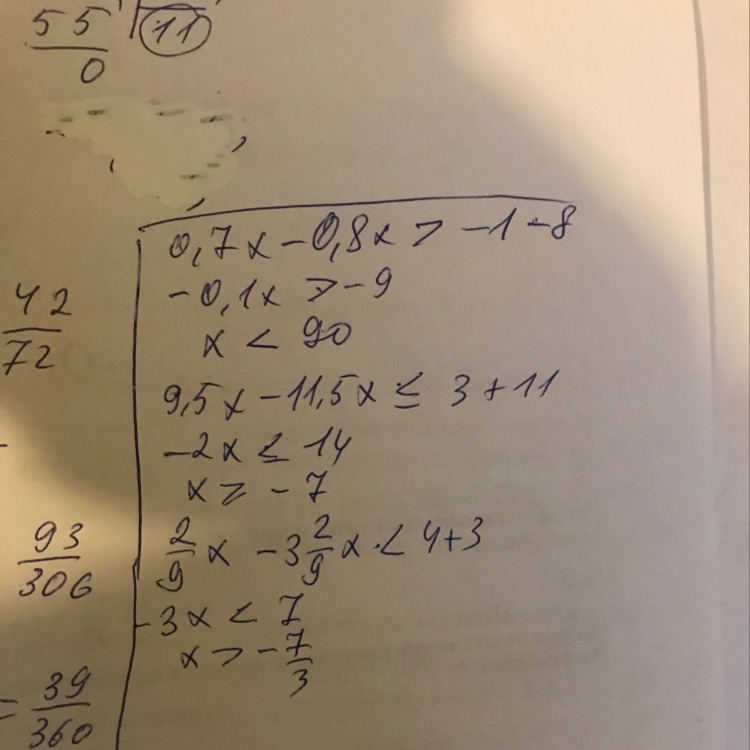 55 11
0
0,7x - 0,8x > -1-8
-0,1x > -9
x < 90
42/72
9,5x - 11,5x ≤ 3 + 11
-2x ≤ 14
x ≥ -7
93/306
2/9 x - 3 2/9 x < 4+3
-3x < 7
x > - 7/3
= 39/360